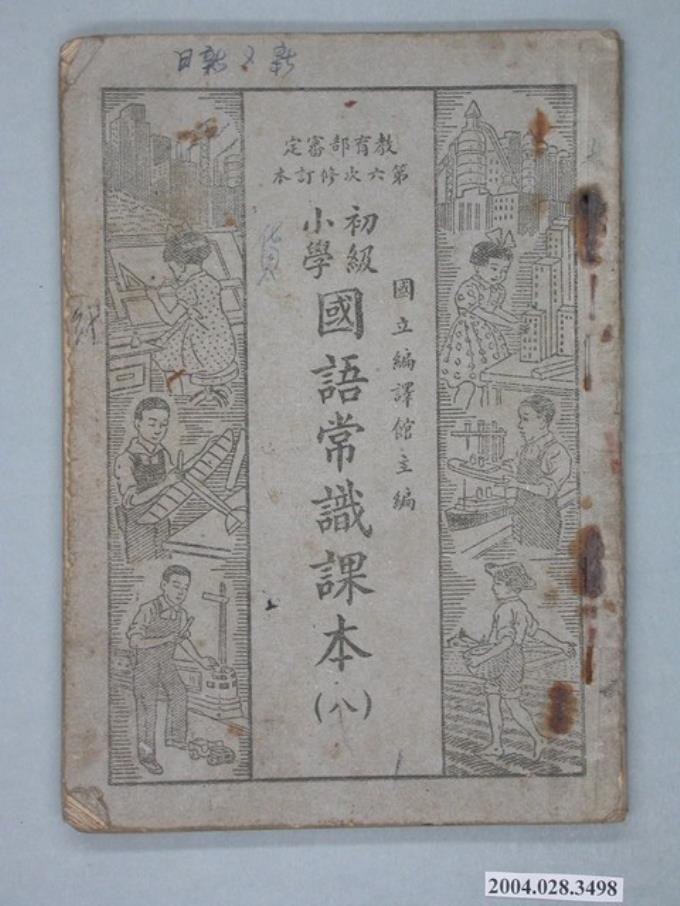 日新又新
教育部審定
第六次修訂本
初級
小學
國語常識課本
(八)
國立編譯館主編
2004.028.3498